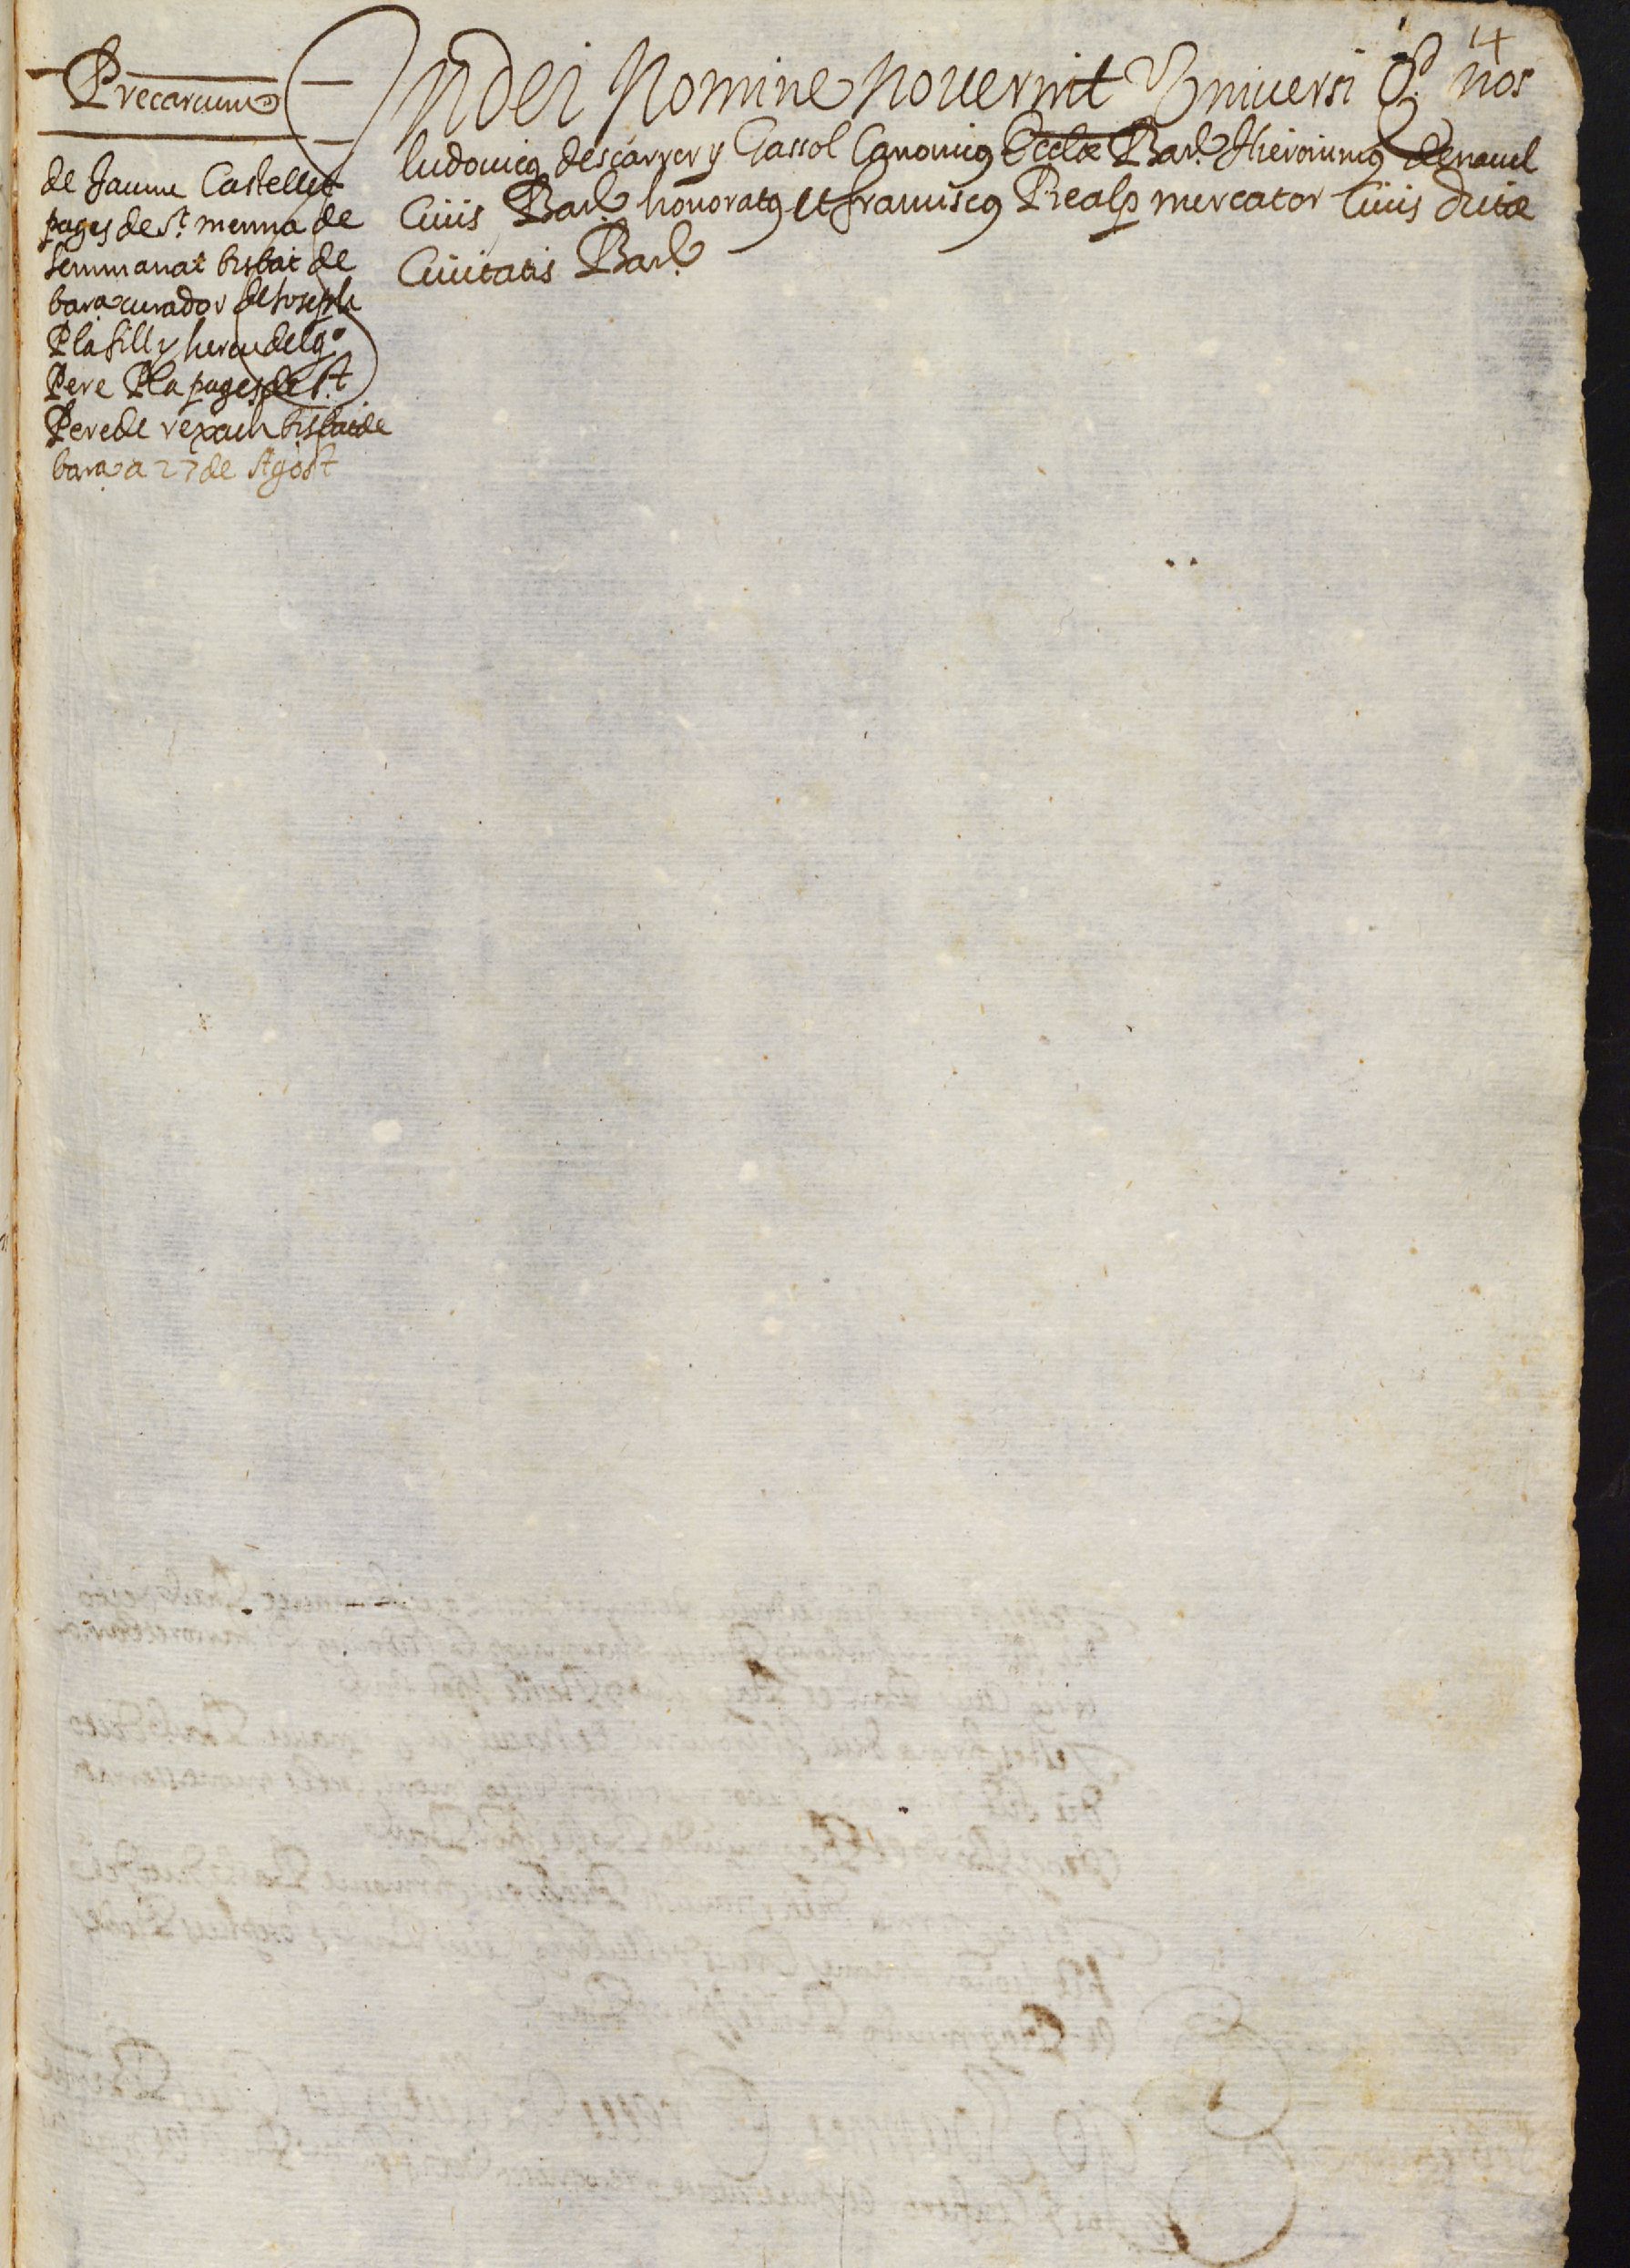 14
Precarium
de Jaume Castellet
pages de St. menna de
Senmanat bisbat de
bara curador de Joseph
Pla fill y hereu del q.º
Pere Pla pages de St.
Pere de rexach bisbat de
bara a 27 de Agost
In dei Nomine Noverint Universi Qd. nos
ludovicus descarrer y Gassol Canonicus Ecclæ Bar. Hieronimus de navel
Civis Bar. honoratus et franciscus Realp mercator Civis dictæ
Civitatis Bar.